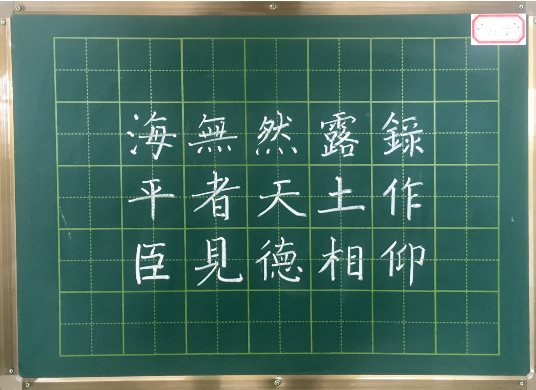 海無然露録
平者天土作
臣見德相仰